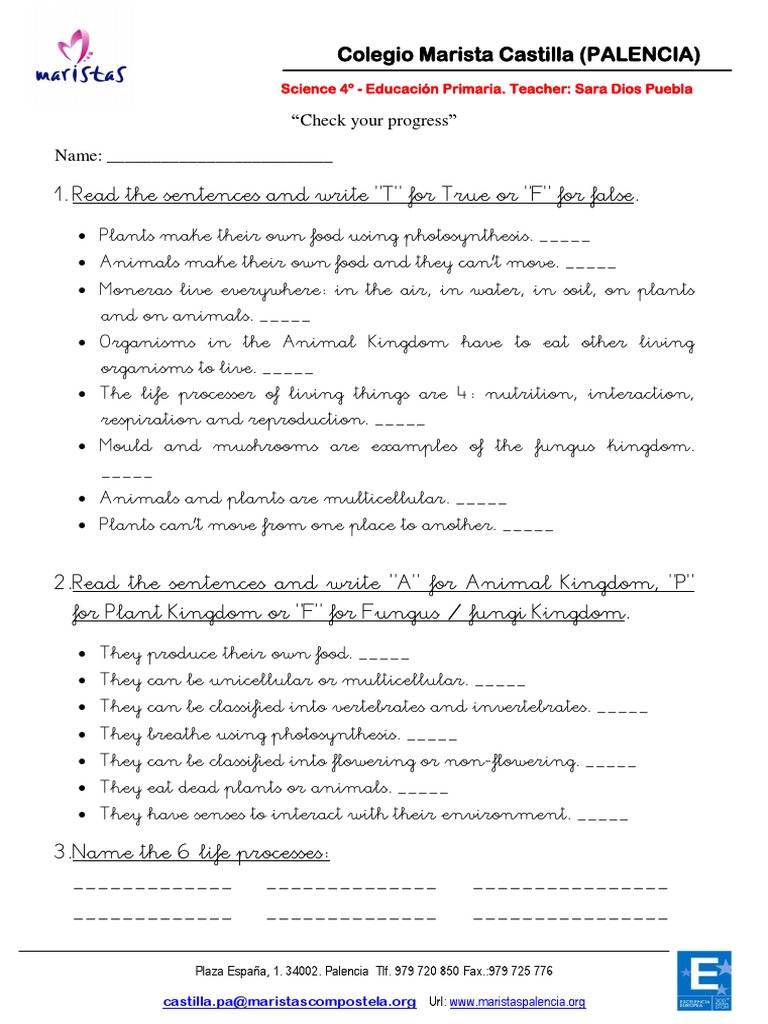 maristas
Colegio Marista Castilla (PALENCIA)
Science 4º - Educación Primaria. Teacher: Sara Dios Puebla
“Check your progress”
Name: _________________________
1. Read the sentences and write "T" for True or "F" for false.
• Plants make their own food using photosynthesis. _____
• Animals make their own food and they can't move. _____
• Moneras live everywhere: in the air, in water, in soil, on plants
and on animals. _____
• Organisms in the Animal Kingdom have to eat other living
organisms to live. _____
• The life processer of living things are 4: nutrition, interaction,
respiration and reproduction. _____
• Mould and mushrooms are examples of the fungus kingdom.
_____
• Animals and plants are multicellular. _____
• Plants can't move from one place to another. _____
2. Read the sentences and write "A" for Animal Kingdom, "P"
for Plant Kingdom or "F" for Fungus / fungi Kingdom.
• They produce their own food. _____
• They can be unicellular or multicellular. _____
• They can be classified into vertebrates and invertebrates. _____
• They breathe using photosynthesis. _____
• They can be classified into flowering or non-flowering. _____
• They eat dead plants or animals. _____
• They have senses to interact with their environment. _____
3. Name the 6 life processes:
_____________ ______________ ________________
_____________ ______________ ________________
Plaza España, 1. 34002. Palencia Tlf. 979 720 850 Fax.:979 725 776
castilla.pa@maristascompostela.org Url: www.maristaspalencia.org
E
EXCELENCIA
EUROPEA